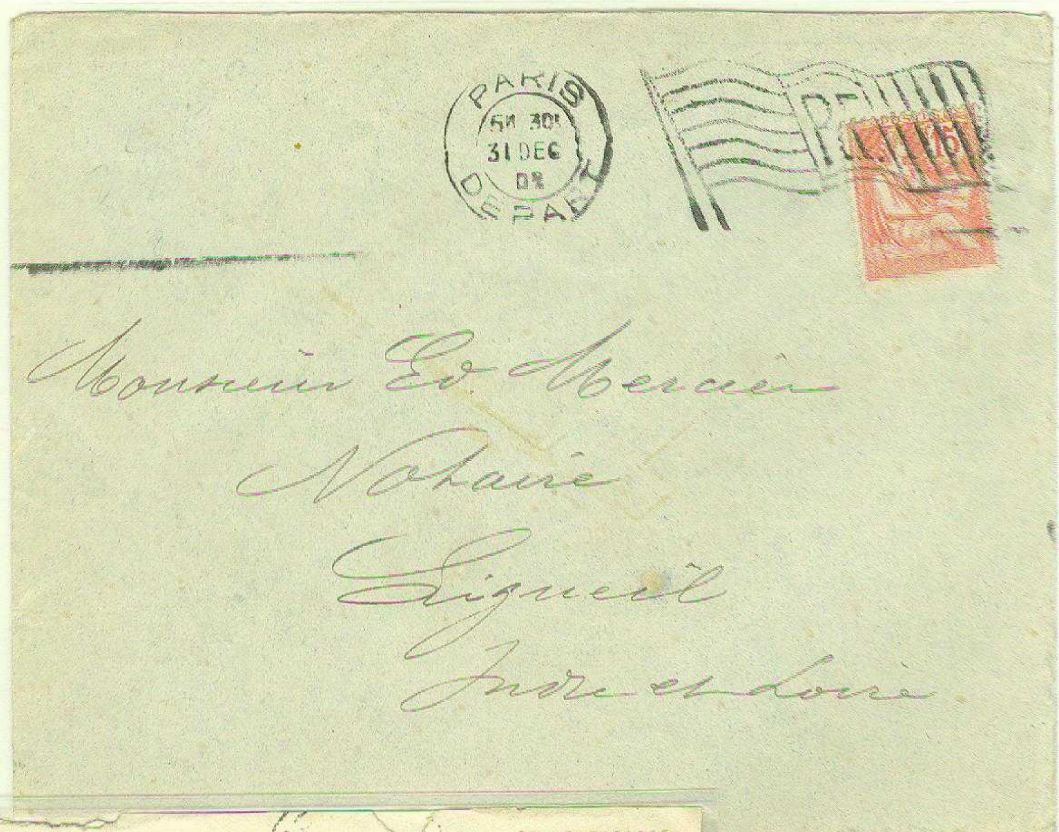 PARIS
31 DEC
DEPART
15
Monsieur Ed. Mercier
Notaire
Ligueil
Indre et Loire